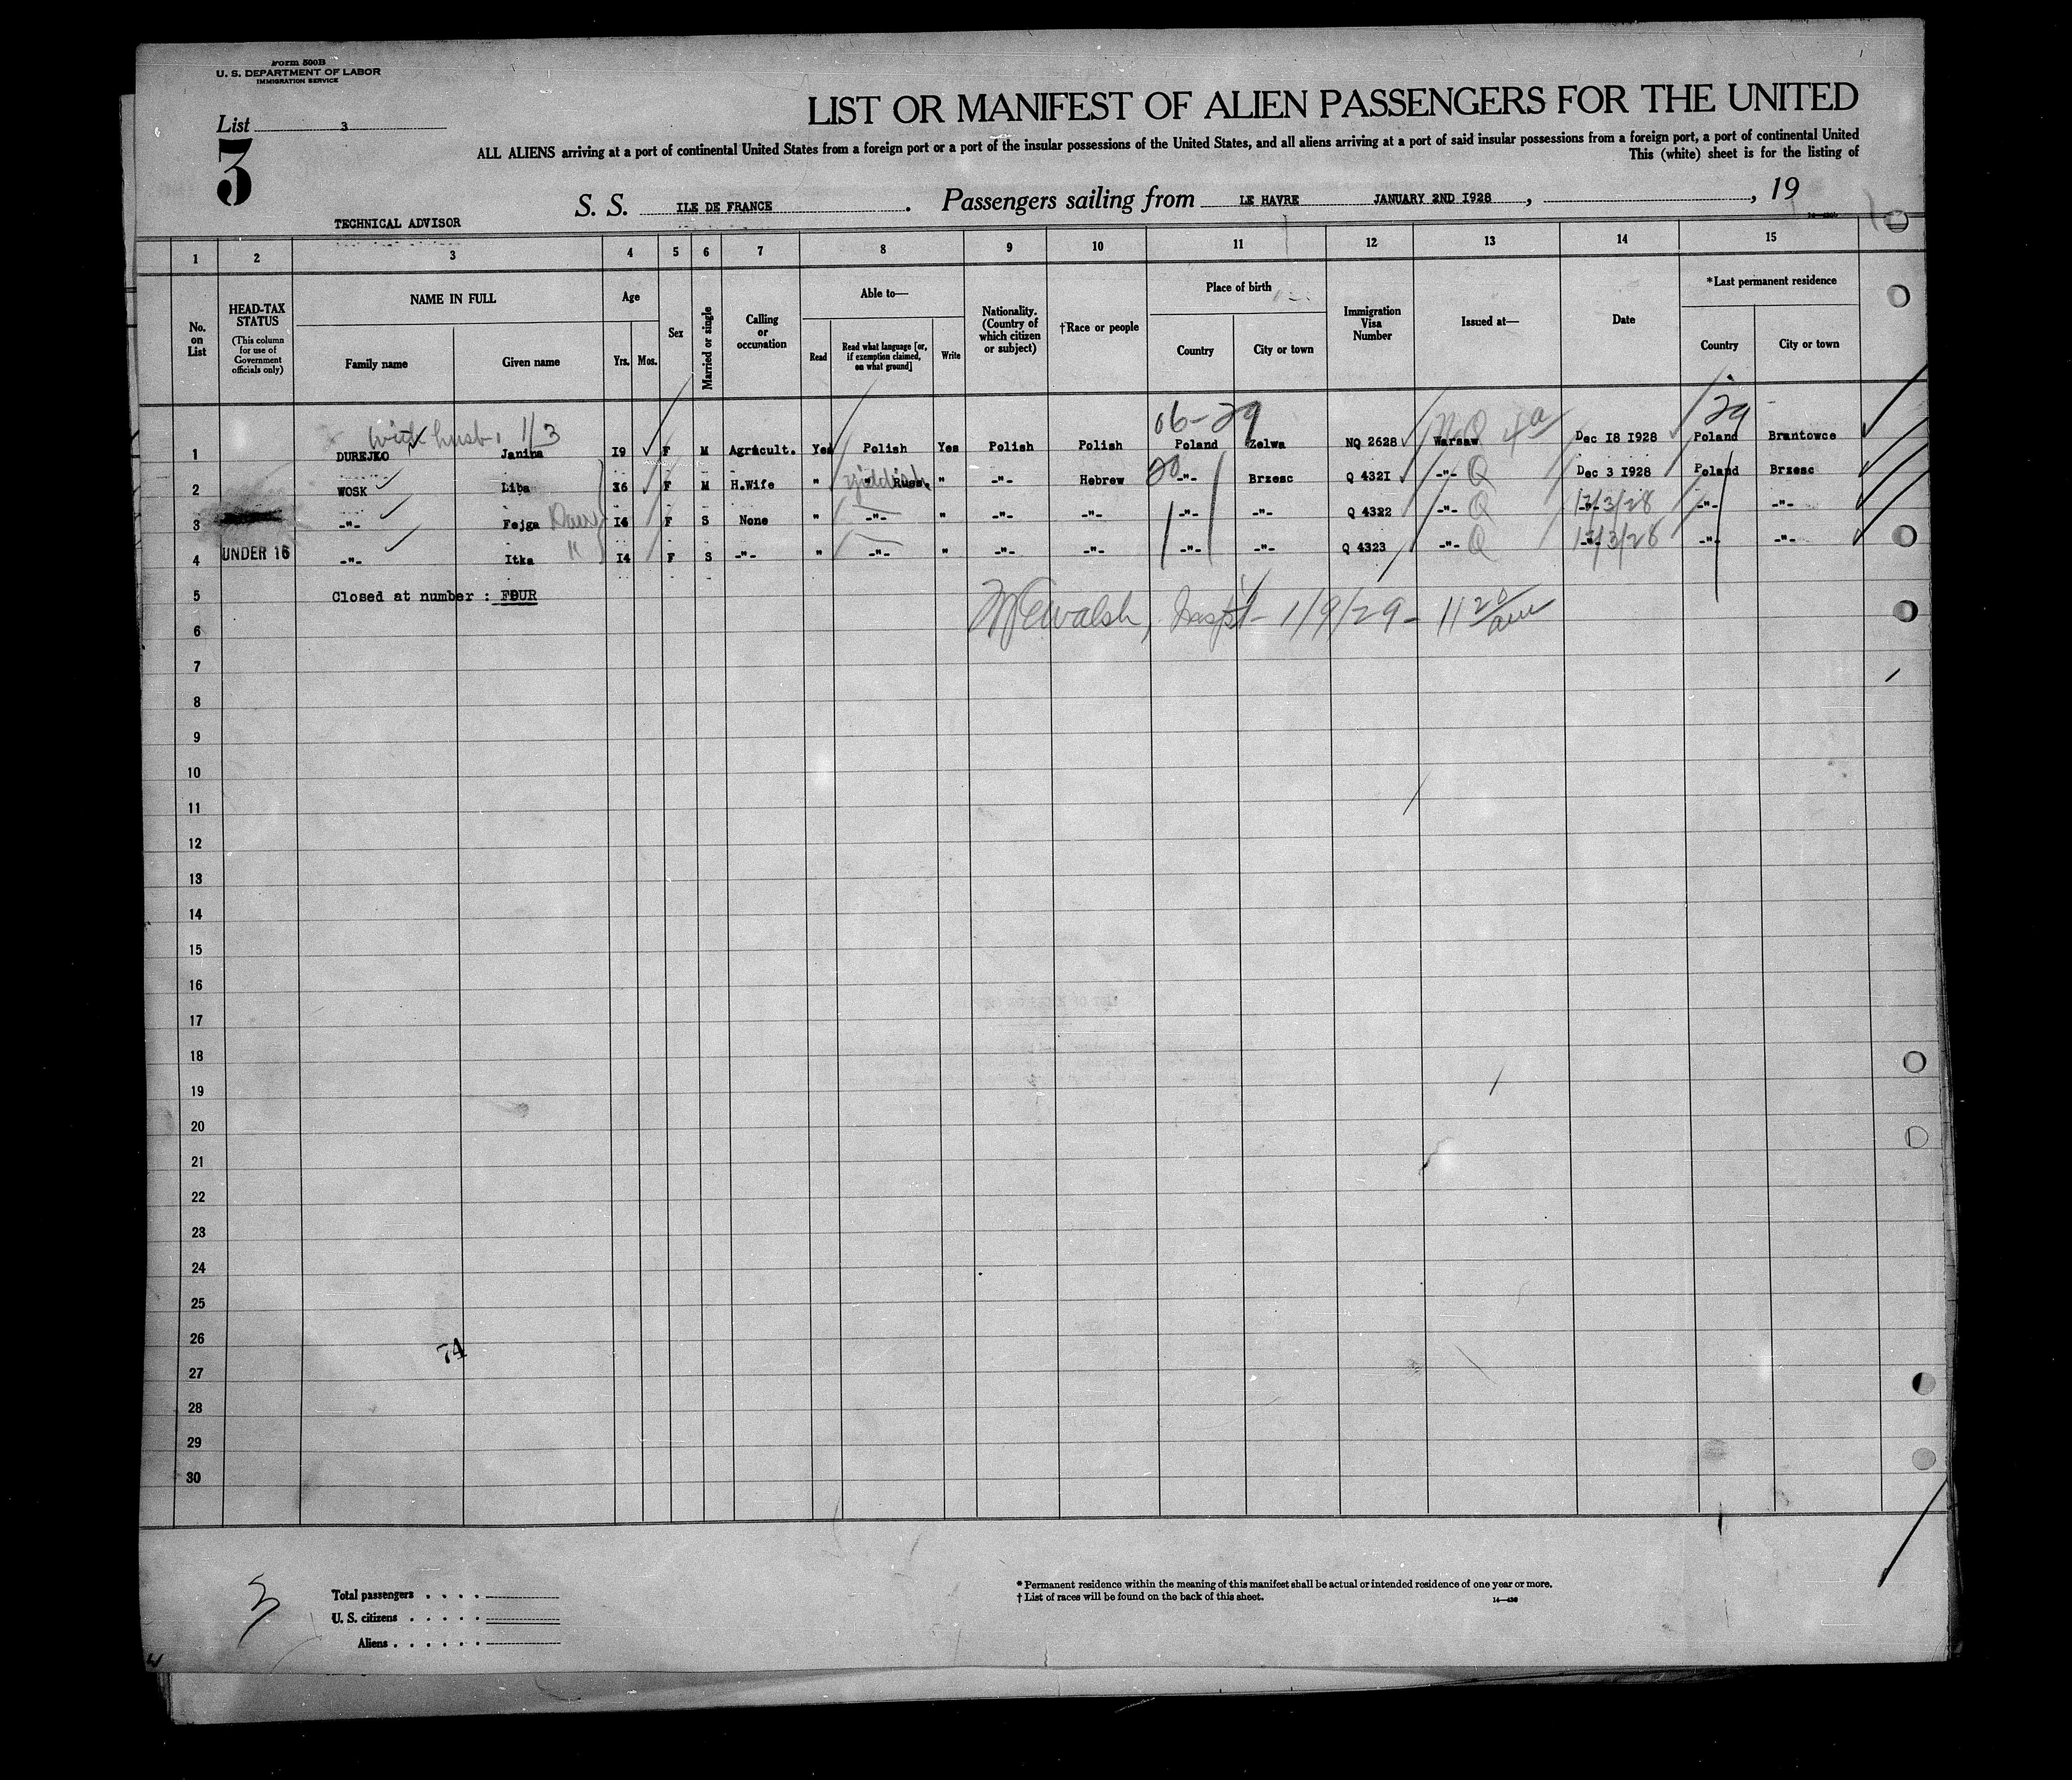 Form 500B
U. S. DEPARTMENT OF LABOR
IMMIGRATION SERVICE
List 3
3
LIST OR MANIFEST OF ALIEN PASSENGERS FOR THE UNITED
ALL ALIENS arriving at a port of continental United States from a foreign port or a port of the insular possessions of the United States, and all aliens arriving at a port of said insular possessions from a foreign port, a port of continental United
This (white) sheet is for the listing of
S. S. ILE DE FRANCE . Passengers sailing from LE HAVRE JANUARY 2ND I928 , , 19
TECHNICAL ADVISOR
1 2 3 4 5 6 7 8 9 10 11 12 13 14 15
No. on List
HEAD-TAX STATUS
(This column for use of Government officials only)
NAME IN FULL
Family name Given name
Age
Yrs. Mos.
Sex
Married or single
Calling or occupation
Able to—
Read
Read what language [or, if exemption claimed, on what ground]
Write
Nationality. (Country of which citizen or subject)
†Race or people
Place of birth
Country City or town
Immigration Visa Number
Issued at—
Date
*Last permanent residence
Country City or town
with husb. 1/3 06-29 NQ 4a 29
1 DUREJKO Janina I9 F M Agricult. Yes Polish Yes Polish Polish Poland Zelwa NQ 2628 Warsaw Dec I8 I928 Poland Brantowce
2 WOSK Liba 36 F M H.Wife " " Russ. Yiddish " -"- Hebrew -"- Brzesc Q 432I -"- Q Dec 3 I928 Poland Brzesc
3 -"- Fejga Daug I6 F S None " -"- " -"- -"- -"- -"- Q 4322 -"- Q -"- 12/3/28 -"- -"-
UNDER 16
4 -"- Itka " I4 F S -"- " -"- " -"- -"- -"- -"- Q 4323 -"- Q -"- 12/3/28 -"- -"-
5 Closed at number : FOUR
Walsh, Inspt- 1/9/29 - 11 20 am
6
7
8
9
10
11
12
13
14
15
16
17
18
19
20
21
22
23
24
25
26
74
27
28
29
30
3
Total passengers . . . .
U. S. citizens . . . . .
Aliens . . . . . .
* Permanent residence within the meaning of this manifest shall be actual or intended residence of one year or more.
† List of races will be found on the back of this sheet.
14—430